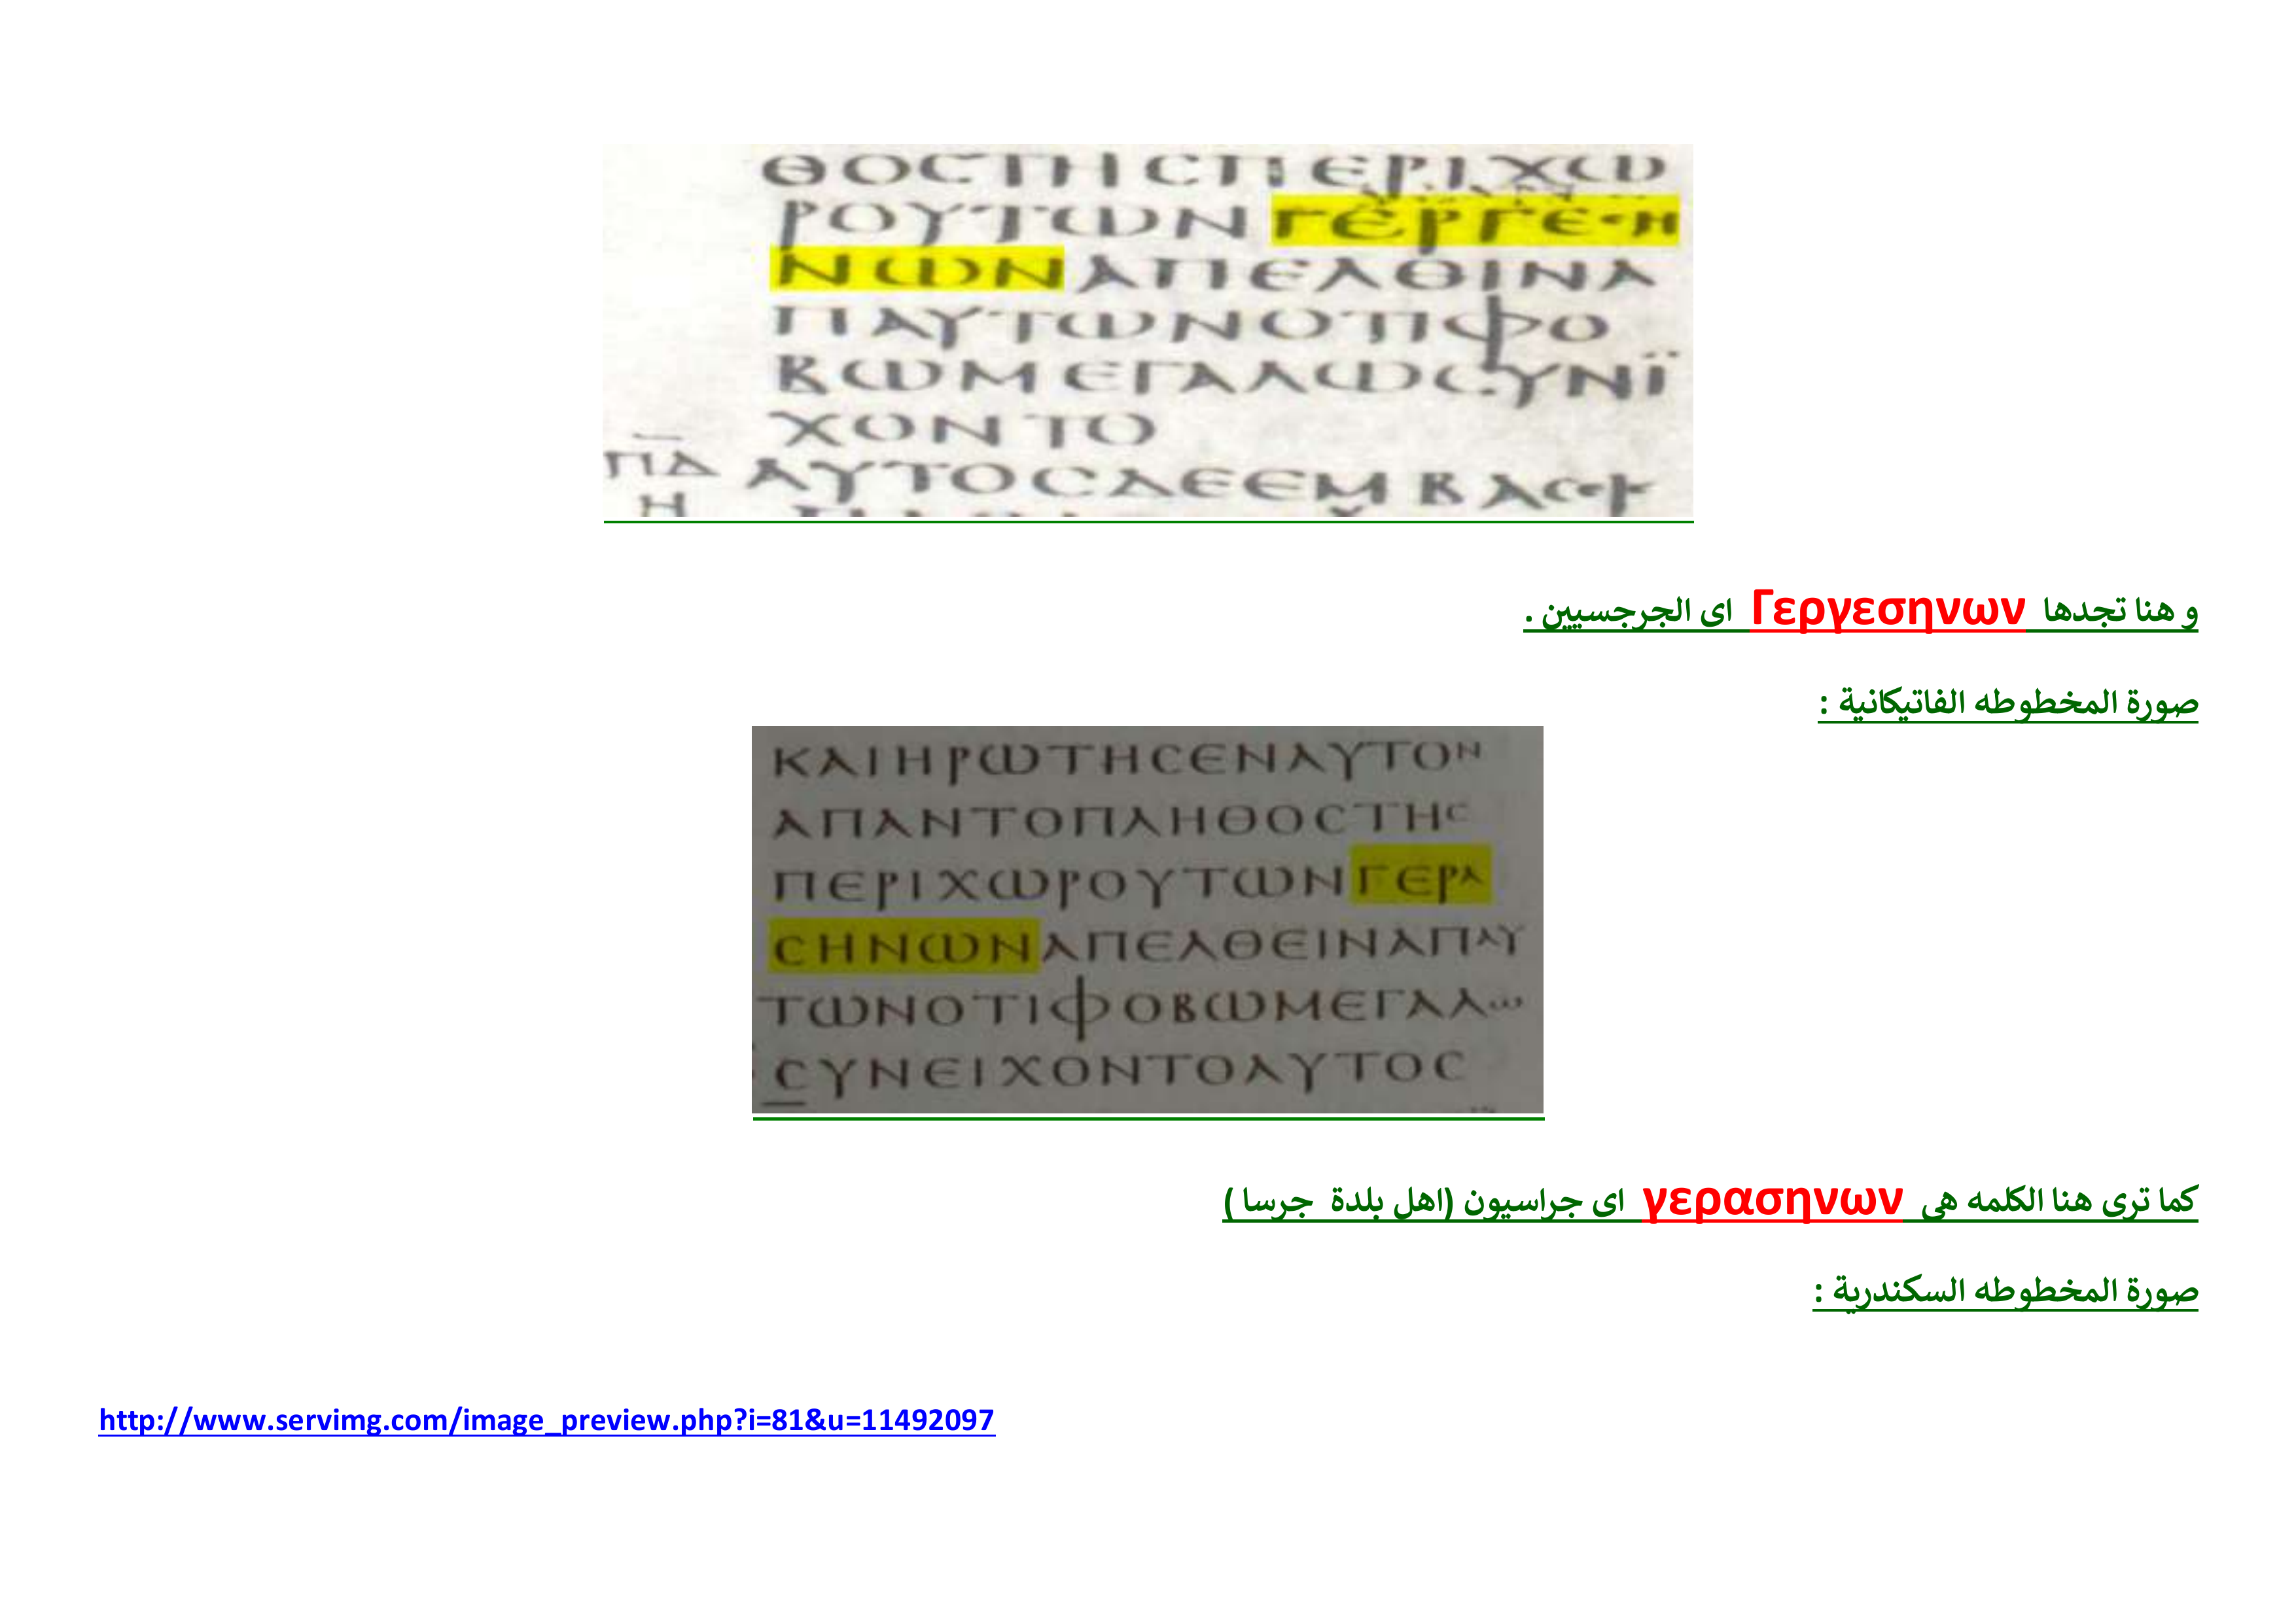 ΘΟϹΤΗϹΠΕΡΙΧΩ
ΡΟΥΤΩΝΓΕΡΓΕϹΗ
ΝΩΝΑΠΕΛΘΙΝΑ
ΠΑΥΤΩΝΟΤΙΦΟ
ΒΩΜΕΓΑΛΩϹΥΝΪ
ΧΟΝΤΟ
ΠΔ ΑΥΤΟϹΔΕΕΜΒΑϹ
Η
و هنا تجدها Γεργεσηνων اى الجرجسيين .
صورة المخطوطه الفاتيكانية :
ΚΑΙΗΡΩΤΗϹΕΝΑΥΤΟΝ
ΑΠΑΝΤΟΠΛΗΘΟϹΤΗϹ
ΠΕΡΙΧΩΡΟΥΤΩΝΓΕΡΑ
ϹΗΝΩΝΑΠΕΛΘΕΙΝΑΠΑΥ
ΤΩΝΟΤΙΦΟΒΩΜΕΓΑΛΩ
ϹΥΝΕΙΧΟΝΤΟΑΥΤΟϹ
كما ترى هنا الكلمه هى γερασηνων اى جراسيون (اهل بلدة جرسا )
صورة المخطوطه السكندرية :
http://www.servimg.com/image_preview.php?i=81&u=11492097